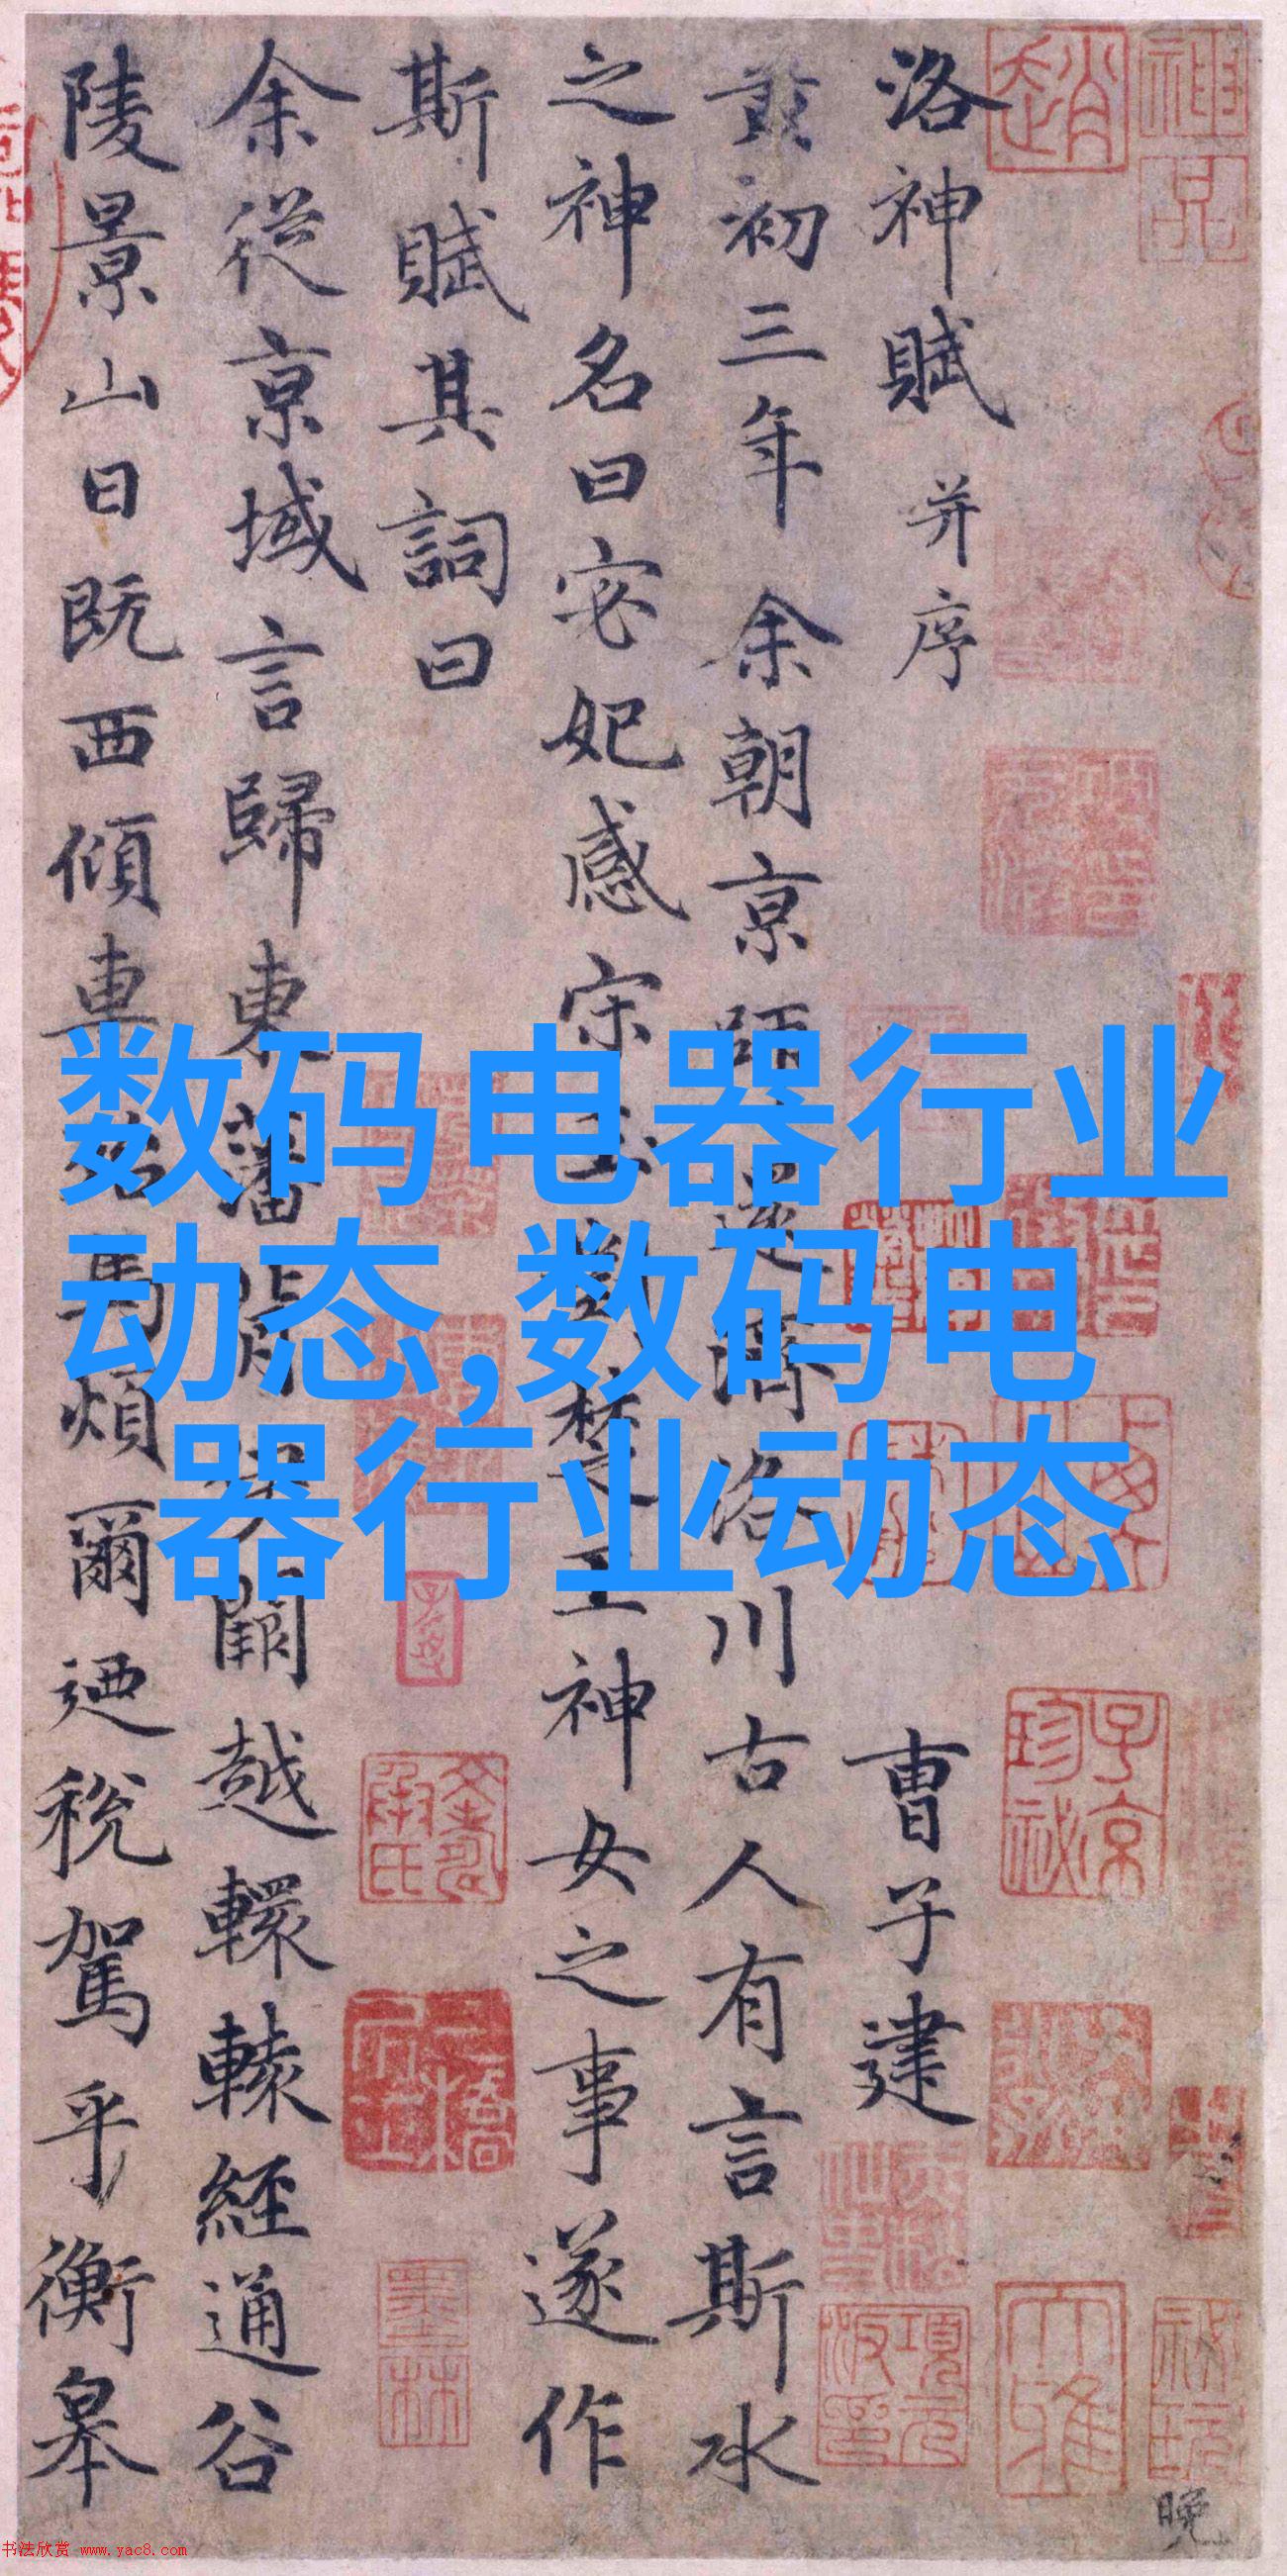 洛神賦 并序 曹子建
黃初三年余朝京師還濟洛川古人有言斯水
之神名曰宓妃感宋玉對楚王神女之事遂作
斯賦其詞曰
余從京域言歸東藩背伊闕越轘轅經通谷
陵景山日既西傾車殆馬煩爾迺稅駕乎衡皋
数码电器行业
动态,数码电
器行业动态
趙
神品
子京珍秘
墨林
項元汴印
晚
书法欣赏 www.yac8.com